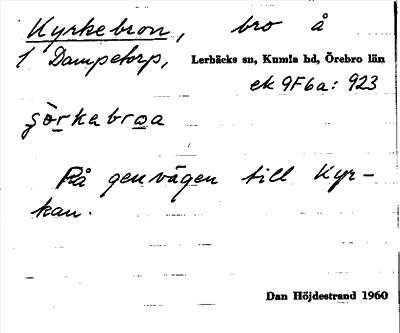 Kyrkebron, bro å
1 Dampetorp, Lerbäcks sn, Kumla hd, Örebro län
ek 9F6a: 923
ʂörkebroa
På genvägen till Kyr-
kan.
Dan Höjdestrand 1960